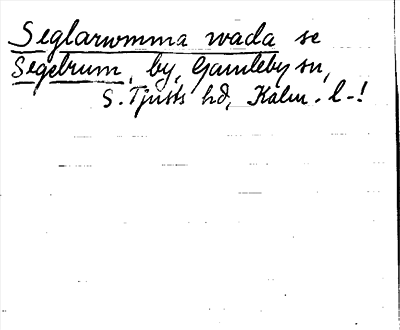 Seglarwmma wada se
Segebrum, by, Gamleby sn,
S. Tjusts hd, Kalm. l-!